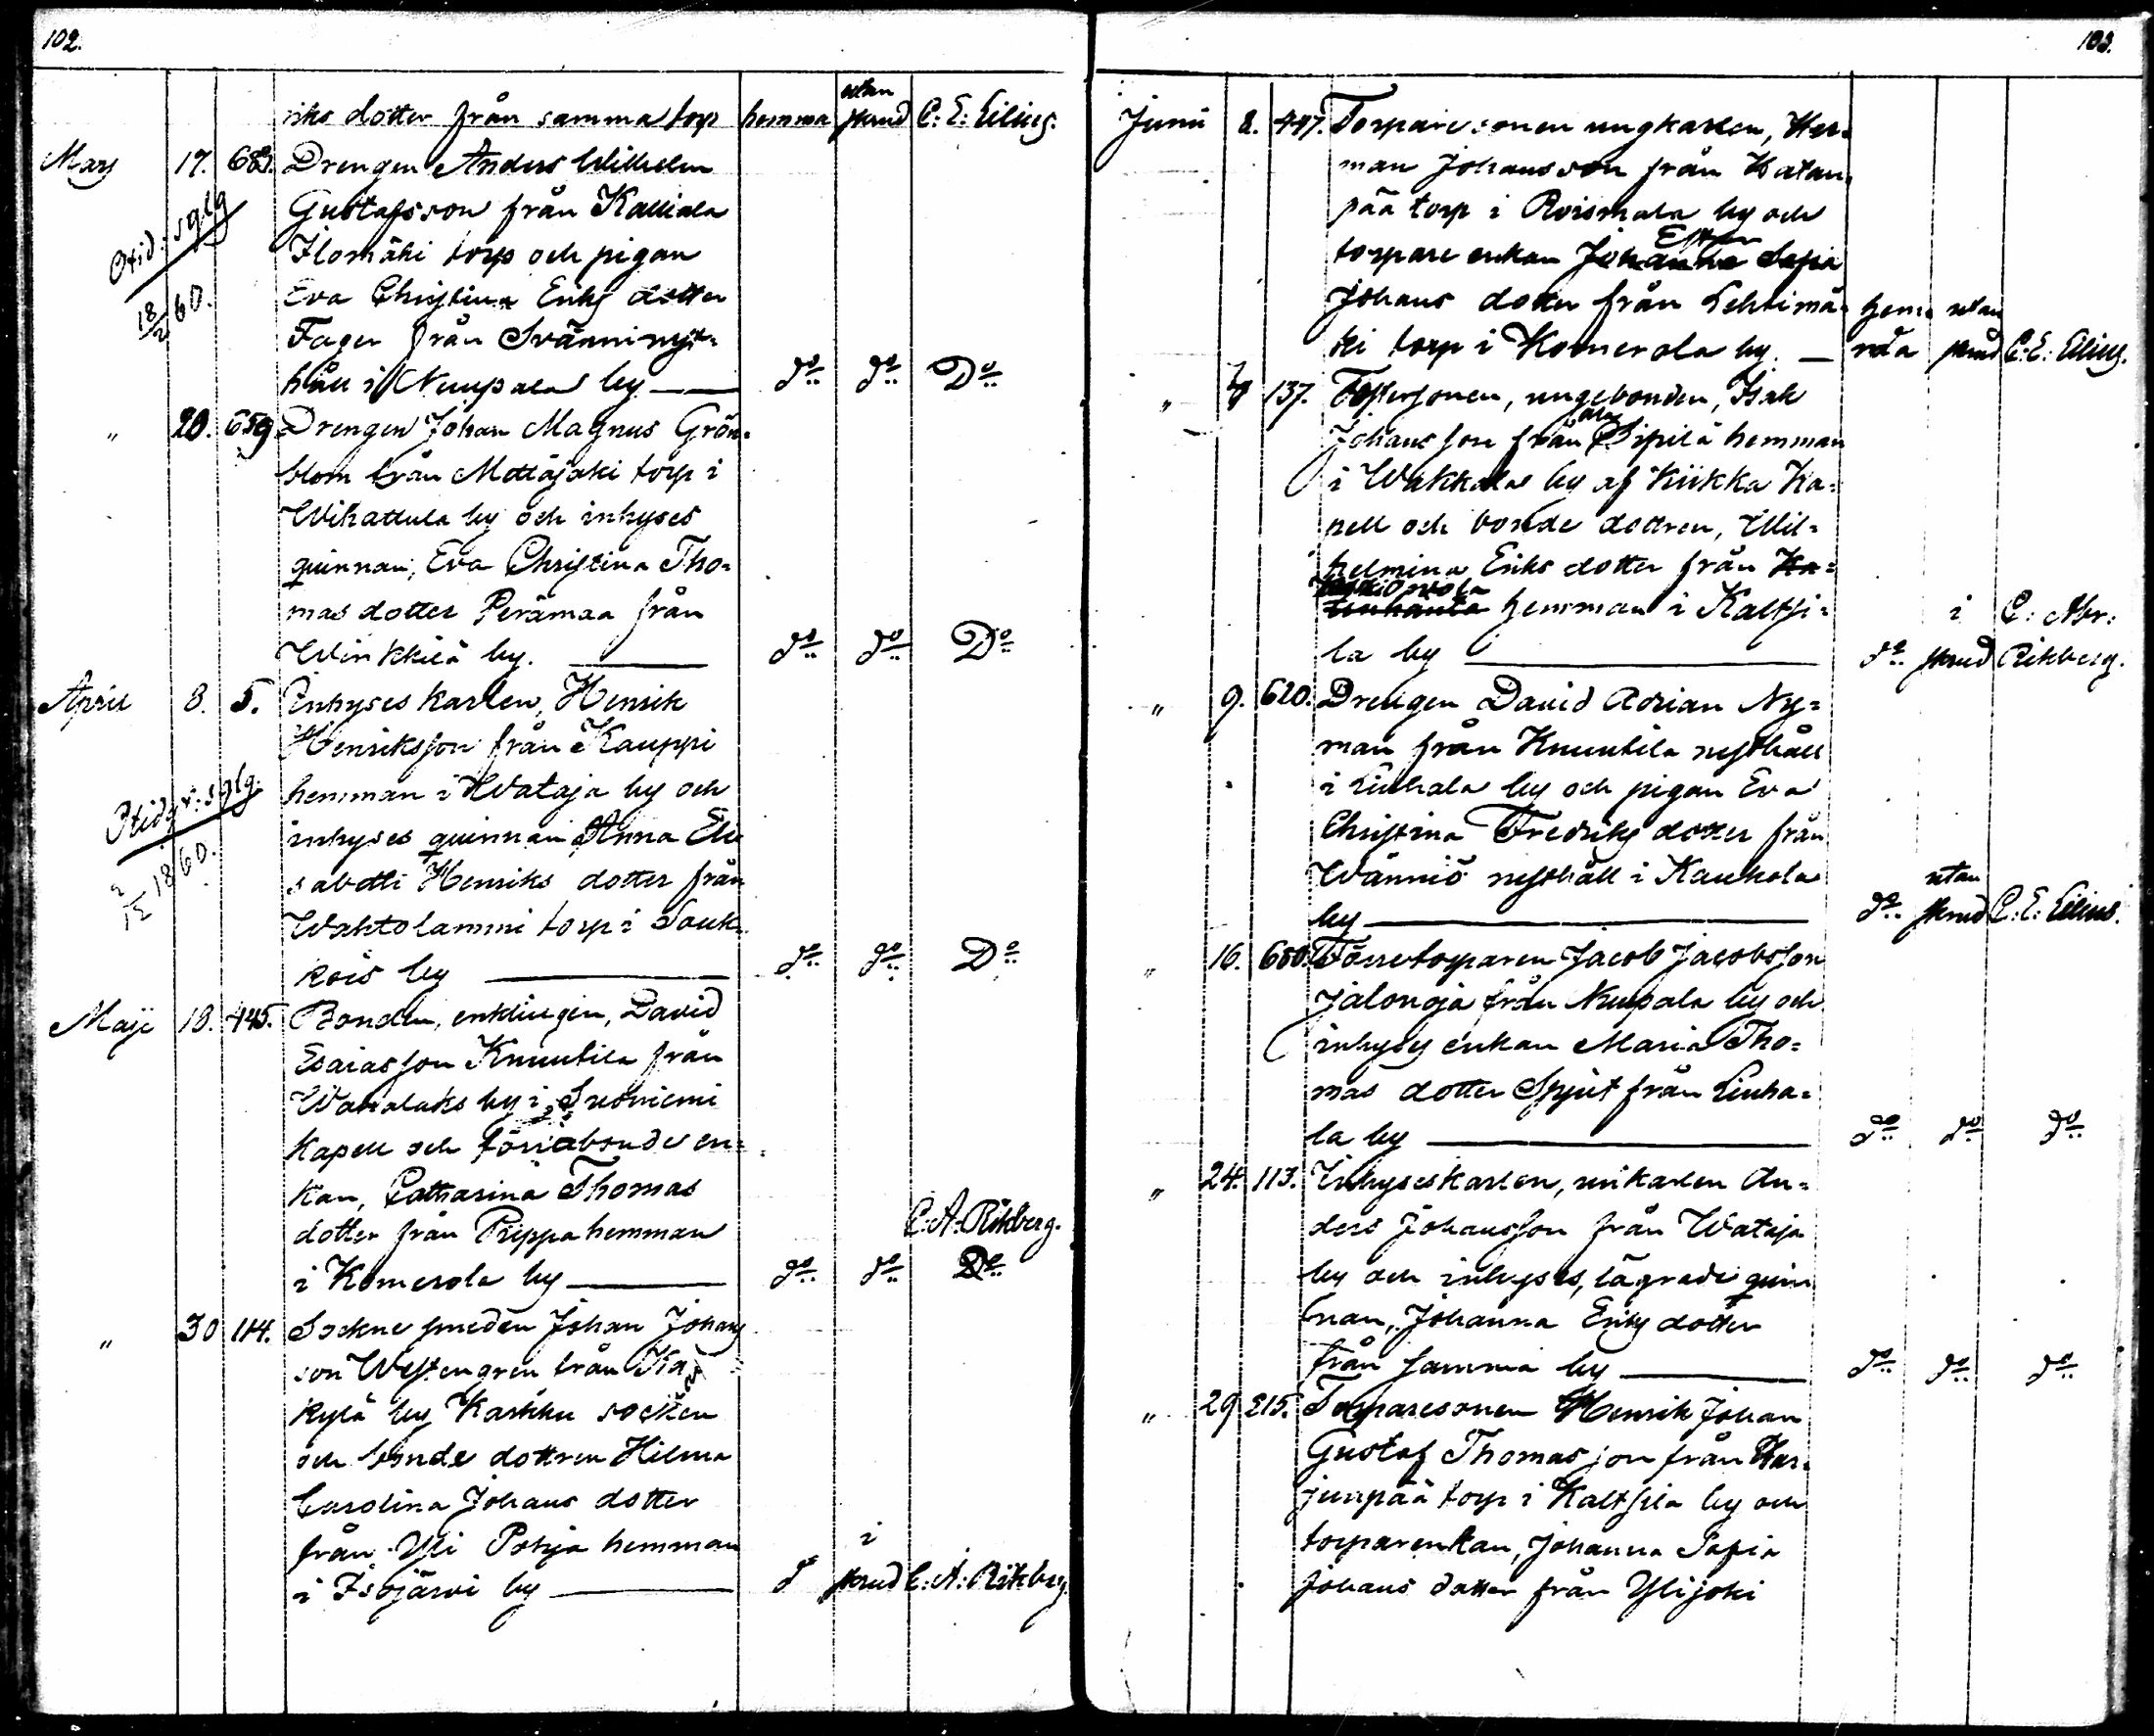 102.
riks dotter från samma torp hemma utan skrud C: E: Eilius.
Mars 17. 683. Drengen Anders Wilhelm
Gustafsson från Kalliala
Ilomäki torp och pigan
Eva Christina Eriks dotter
Fager från Svänni nyt-
håll i Nuupala by — do do Do
18/2 60.
„ 20. 659. Drengen Johan Magnus Grön-
blom från Mettäjoki torp i
Wihattula by och inhyses
quinnan, Eva Christina Tho-
mas dotter Perämaa från
Winkkilä by. — do do Do
April 8. 5. Inhyses karlen, Henrik
Henriksson från Kauppi
hemman i Wataja by och
inhyses quinnan Anna Eli-
sabetti Henriks dotter från
Wahtolammi torp i Souk-
kois by — do do Do
1860.
Maji 18. 445. Bonden, enklingen, David
Esaiasson Knuutila från
Wahalaks by i Suoniemi
kapell och förra bonde en-
kan, Catharina Thomas
dotter från Prippa hemman C: A: Rikberg.
i Komerola by — do do Do
„ 30 114. Sockne smeden Johan Johans
son Westengren från
kylä by Karkku socken
och bonde dottren Hilma
Carolina Johans dotter
från Yli Pohja hemman i
i Isojärvi by — d skrud C: A: Rikberg.
103.
Junii 2. 447. Torpare sonen ungkarlen, Her-
man Johansson från Katan-
pää torp i Roismala by och
Ester
torpare enkan Johanna Sofia
Johans dotter från Lehtimä- hem- utan
ki torp i Komerola by. — ma skrud C: E: Eilius.
„ 137. Fostersonen, ungebonden, Isak
Johansson från Ala Sipilä hemman
i Wakkala by af Kiikka Ka-
pell och bonde dottren, Wil-
helmina Eriks dotter från Ka-
hemman i Kaltsi- i C: Abr:
la by — do skrud Rikberg.
„ 9. 620. Drengen David Adrian Ny-
man från Knuutila nysthåll
i Liuhala by och pigan Eva
Christina Fredriks dotter från
Wänniö nysthåll i Kaukola utan
by — do skrud C: E: Eilius.
„ 16. 680. Förre torparen Jacob Jacobsson
Jalonoja från Nuupala by och
inhyses enkan Maria Tho-
mas dotter Spjut från Liuha-
la by — do do do
„ 24. 113. Inhyseskarlen, enkarlen An-
ders Johansson från Wataja
by och inhyses, lägrade quin
nan, Johanna Eriks dotter
från samma by — do do do
„ 29 215. Torparesonen Henrik Johan
Gustaf Thomasson från Har-
junpää torp i Kaltsila by och
torparenkan, Johanna Sofia
Johans dotter från Ylijoki